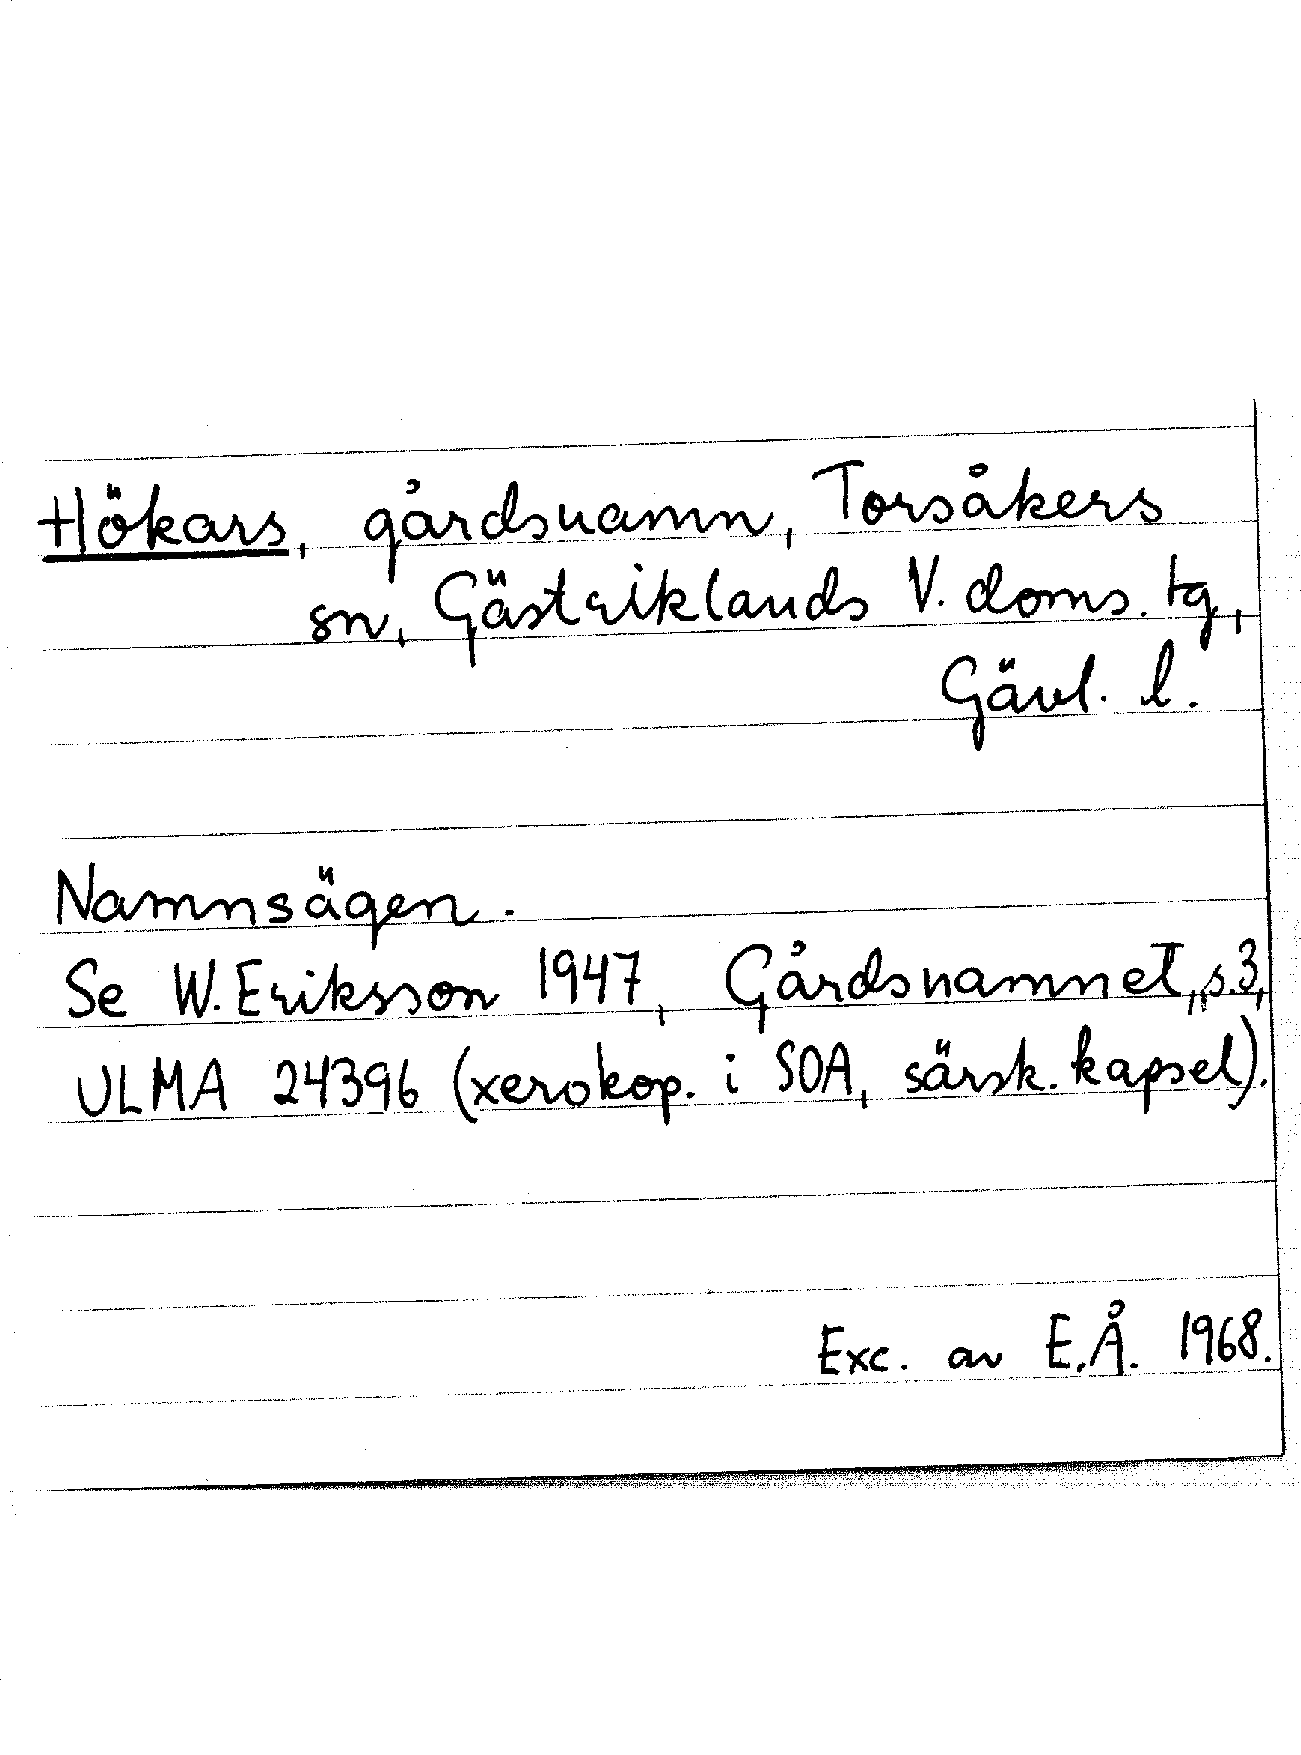 Hökars, gårdsnamn, Torsåkers
sn, Gästriklands V. doms. tg,
Gävl. l.
Namnsägen.
Se W. Eriksson 1947, Gårdsnamnet, s. 3,
ULMA 24396 (xerokop. i SOA, särsk. kapsel).
Exc. av E.Å. 1968.